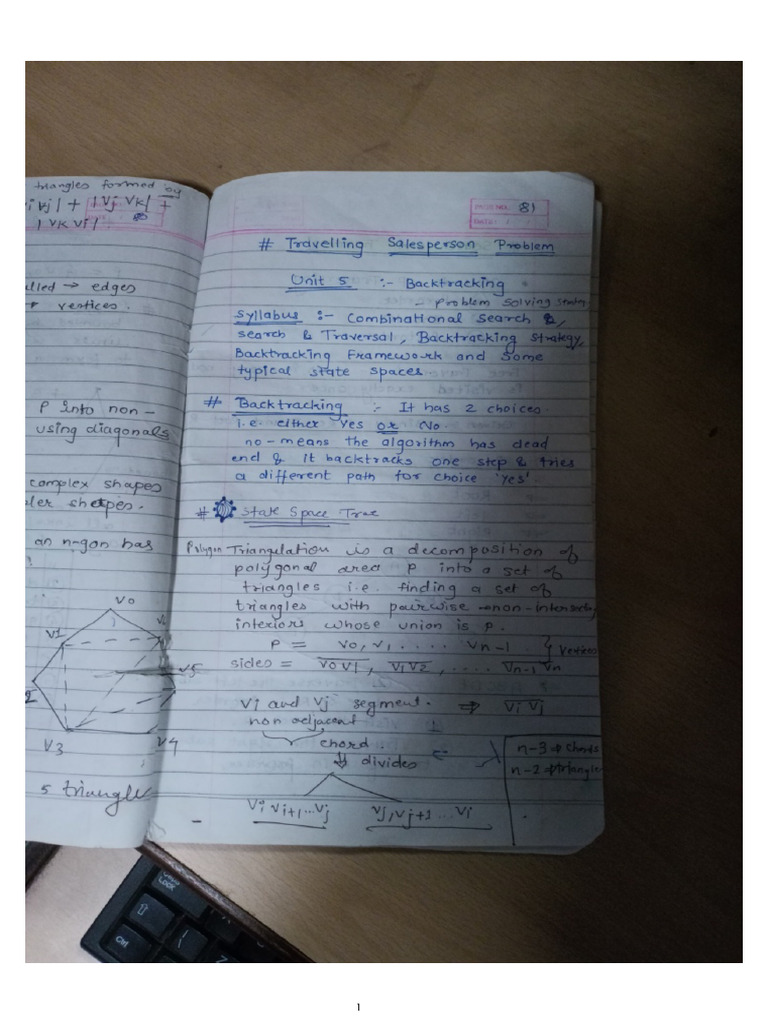 triangles formed by
i vj| + |vj vk| +
|vk vi|.
80
alled → edges
→ vertices.
P into non-
using diagonals
complex shapes
ler shapes.
an n-gon has
v0
v1
v5
2
v3
v4
5 triangle
81
# Travelling Salesperson Problem
Unit 5 :- Backtracking
- Problem solving
Syllabus :- Combinational search &,
search & Traversal, Backtracking strategy,
Backtracking Framework and some
typical state spaces.
# Backtracking :- It has 2 choices
i.e. either Yes or No.
no-means the algorithm has dead
end & it backtracks one step & tries
a different path for choice 'yes'.
# State Space Tree
Polygon Triangulation is a decomposition of
polygonal area P into a set of
triangles i.e. finding a set of
triangles with pairwise non-intersecting
interiors whose union is P.
P = v0, v1 . . . . . vn-1 } vertices
sides = v0v1, v1v2, .... vn-1 vn
vi and vj segment. ⇒ vi vj
non adjacent
chord.
n-3 ⇒ chords
divides
n-2 ⇒ triangles
vi vi+1...vj vj, vj+1 ... vi
Caps
Lock
Ctrl
Z
1